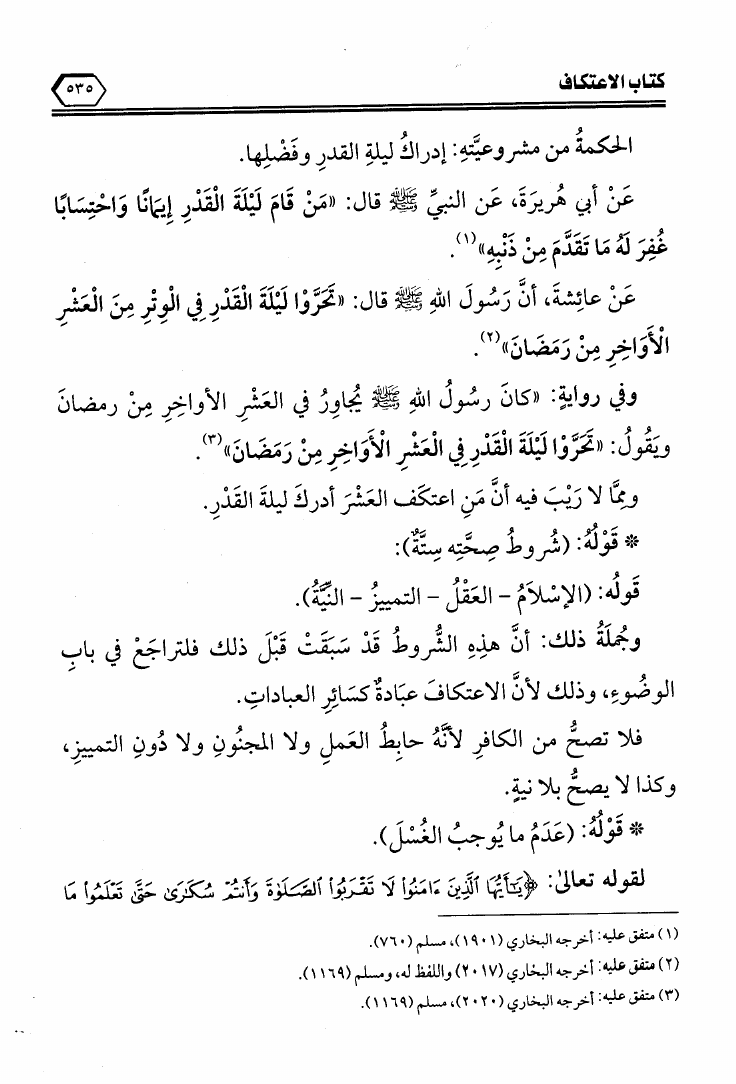 كتاب الاعتكاف
٥٣٥
الحكمةُ من مشروعيَّتهِ: إدراكُ ليلةِ القدرِ وفَضْلِها.
عَنْ أبي هُريرَةَ، عَن النبيِّ ﷺ قال: «مَنْ قَامَ لَيْلَةَ الْقَدْرِ إِيمَانًا وَاحْتِسَابًا
غُفِرَ لَهُ مَا تَقَدَّمَ مِنْ ذَنْبِهِ»(١).
عَنْ عائِشةَ، أنَّ رَسُولَ اللهِ ﷺ قال: «تَحَرَّوْا لَيْلَةَ الْقَدْرِ فِي الْوِتْرِ مِنَ الْعَشْرِ
الْأَوَاخِرِ مِنْ رَمَضَانَ»(٢).
وفي روايةٍ: «كانَ رسُولُ اللهِ ﷺ يُجاوِرُ في العَشْرِ الأواخِرِ مِنْ رمضانَ
ويَقُولُ: «تَحَرَّوْا لَيْلَةَ الْقَدْرِ فِي الْعَشْرِ الْأَوَاخِرِ مِنْ رَمَضَانَ»(٣).
وممَّا لا رَيْبَ فيه أنَّ مَنِ اعتكَف العَشْرَ أدركَ ليلةَ القَدْرِ.
* قَوْلُهُ: (شُروطُ صِحَّتِه سِتَّةٌ):
قَولُه: (الإسْلاَمُ – العَقْلُ – التمييزُ – النِّيَّةُ).
وجُملَةُ ذلك: أنَّ هذِهِ الشُّروطُ قَدْ سَبَقَتْ قَبْلَ ذلك فلتراجَعْ في بابِ
الوضُوءِ، وذلك لأنَّ الاعتكافَ عبَادةٌ كسَائرِ العباداتِ.
فلا تصحُّ من الكافرِ لأنَّهُ حابِطُ العملِ ولا المجنُونِ ولا دُونِ التمييزِ،
وكذا لا يصحُّ بلا نيةٍ.
* قَوْلُهُ: (عَدَمُ ما يُوجبُ الغُسْلَ).
لقوله تعالىٰ: ﴿يَٰٓأَيُّهَا ٱلَّذِينَ ءَامَنُوا۟ لَا تَقْرَبُوا۟ ٱلصَّلَوٰةَ وَأَنتُمْ سُكَٰرَىٰ حَتَّىٰ تَعْلَمُوا۟ مَا
(١) متفق عليه: أخرجه البخاري (١٩٠١)، مسلم (٧٦٠).
(٢) متفق عليه: أخرجه البخاري (٢٠١٧) واللفظ له، ومسلم (١١٦٩).
(٣) متفق عليه: أخرجه البخاري (٢٠٢٠)، مسلم (١١٦٩).